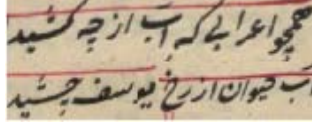 همچو اعرابی که آب از چه کشید
آب حیوان از رخ یوسف چشید